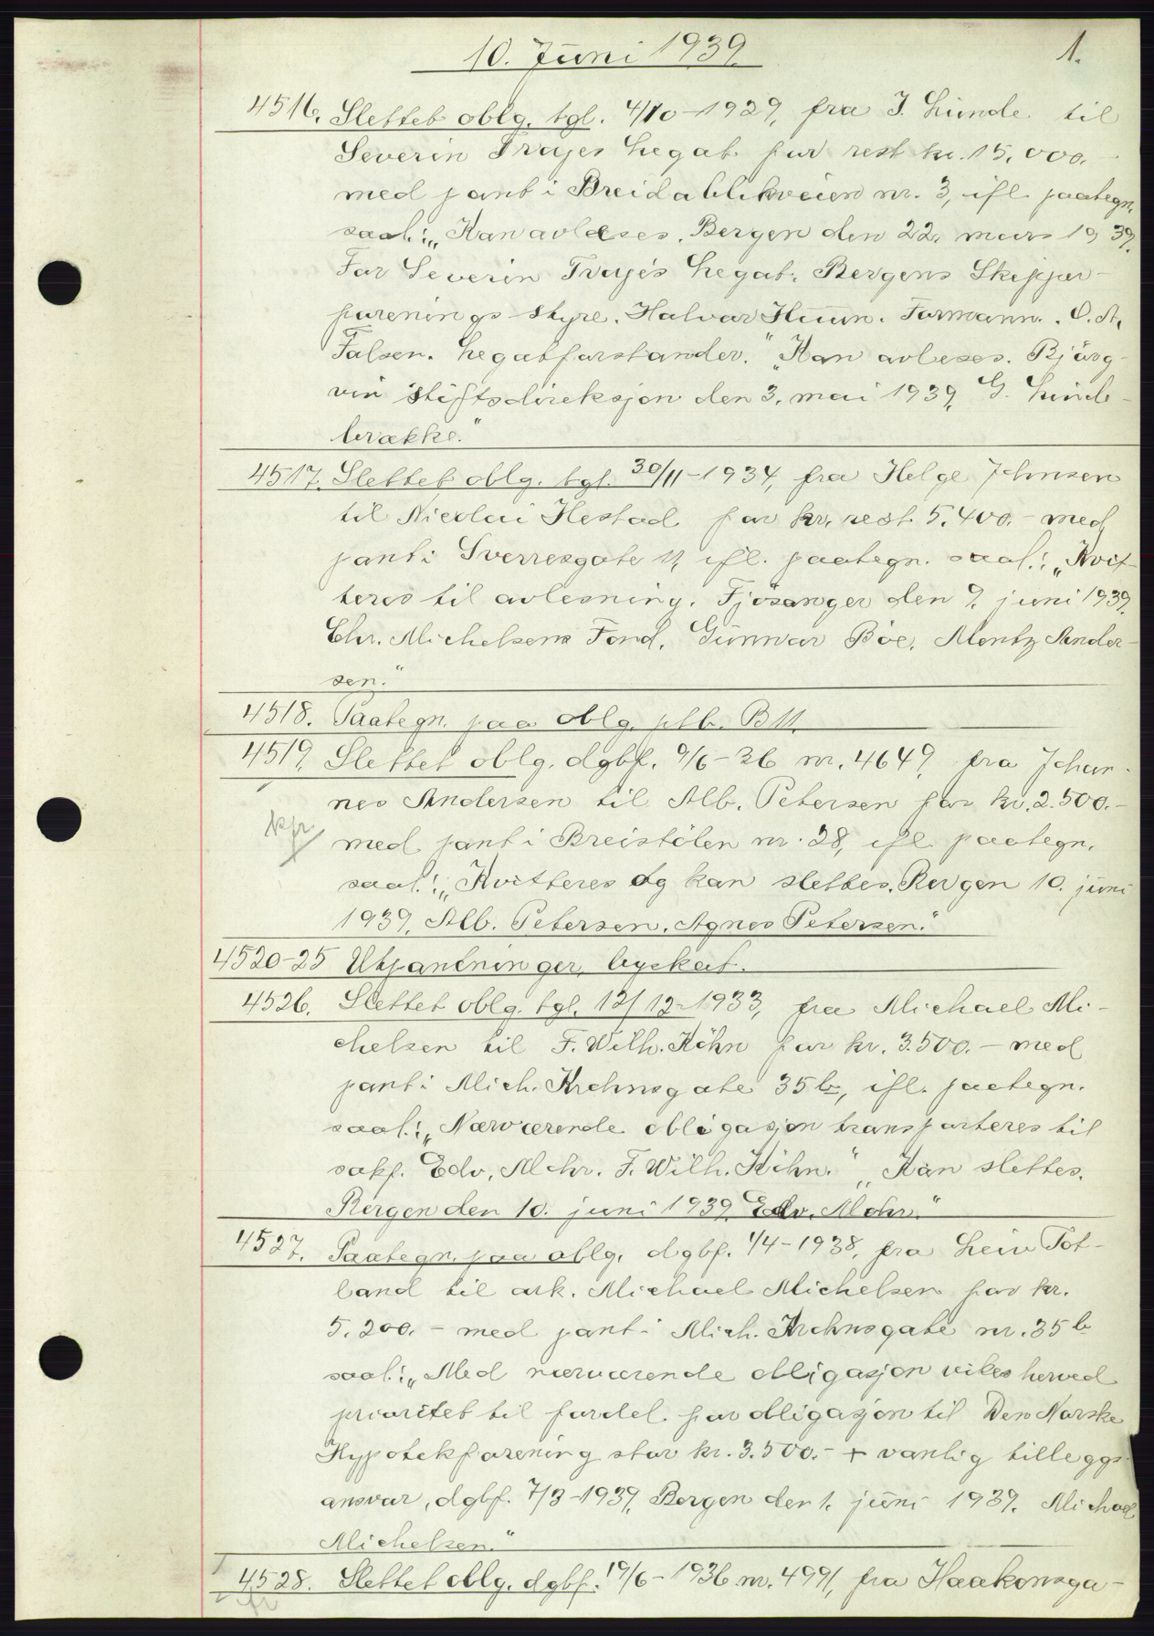 10. Juni 1939.
1.
4516. Slettet oblg. tgl. 4/10-1929, fra J. Lunde til
Severin Trajes Legat for rest kr. 15.000.-
med pant i Breidablikveien nr. 3, ifl. paategn.
saal.: „Kan avleses. Bergen den 22. mars 1939.
For Severin Trajes Legat. Bergens Skipper-
forenings styre. Halvar Huun. Formann. O. A.
Falsen. Legatforstander." „Kan avleses. Björg-
vin stiftsdireksjon den 3. mai 1939, G. Lind-
brække."
4517. Slettet oblg. tgl. 30/11-1934, fra Helge Johnsen
til Nicolai Hestad for kr. rest 5.400.- med
pant i Sverresgate 11, ifl. paategn. saal.: „Kvit-
teres til avlesning. Fjösanger den 9. juni 1939.
Chr. Michelsens Fond. Gunnar Böe. Mentz Ander-
sen."
4518. Paategn. paa oblg. ptb. B 11.
4519. Slettet oblg. dgbf. 9/6-36 nr. 4649, fra Johan-
nes Andersen til Alb. Petersen for kr. 2.500.-
kfr.
med pant i Breistölen nr. 28, ifl. paategn.
saal.: „Kvitteres og kan slettes. Bergen 10. juni
1939. Alb. Petersen. Agnes Petersen."
4520-25 Utpantninger, byskat.
4526. Slettet oblg. tgl. 12/12-1933, fra Michael Mi-
chelsen til F. Wilh. Köhn for kr. 3.500.- med
pant i Mich. Krohnsgate 35 b, ifl. paategn.
saal.: „Nærværende obligasjon transporteres til
sakf. Edv. Mohr. F. Wilh. Köhn." „Kan slettes.
Bergen den 10. juni 1939. Edv. Mohr."
4527. Paategn. paa oblg. dgbf. 1/4-1938, fra Leiv Tot-
land til ark. Michael Michelsen for kr.
5.200.- med pant i Mich. Krohnsgate nr. 35 b
saal.: „Med nærværende obligasjon vikes herved
prioritet til fordel for obligasjon til Den Norske
Hypotekforening stor kr. 3.500.- + vanlig tilleggs-
ansvar, dgbf. 7/3-1939. Bergen den 1. juni 1939. Michael
Michelsen."
4528. Slettet oblg. dgbf. 19/6-1936 nr. 4991, fra Haakonsga-